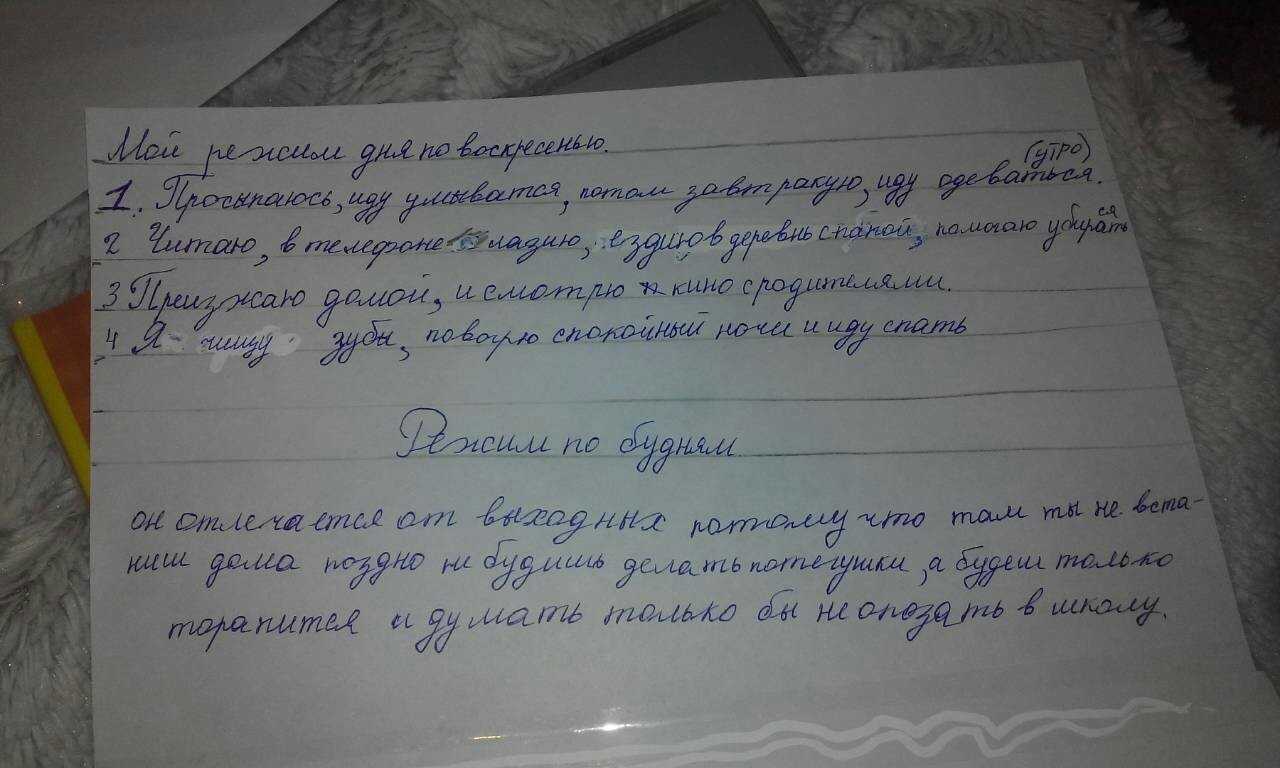 Мой режим дня по воскресенью.
(УТРО)
1. Просыпаюсь, иду умыватся, потом завтракую, иду одеваться.
2 Читаю, в телефоне лазию, ездию в деревнь с папой, помогаю убираться
3 Преизжаю домой, и смотрю кино с родителями.
4 Я чищу зубы, повогрю спокойный ночи и иду спать
Режим по будням
он отлечается от выходных потому что там ты не вста-
ниш дома поздно не будишь делать потегушки, а будеш только
торапится и думать только бы не опоздать в школу.